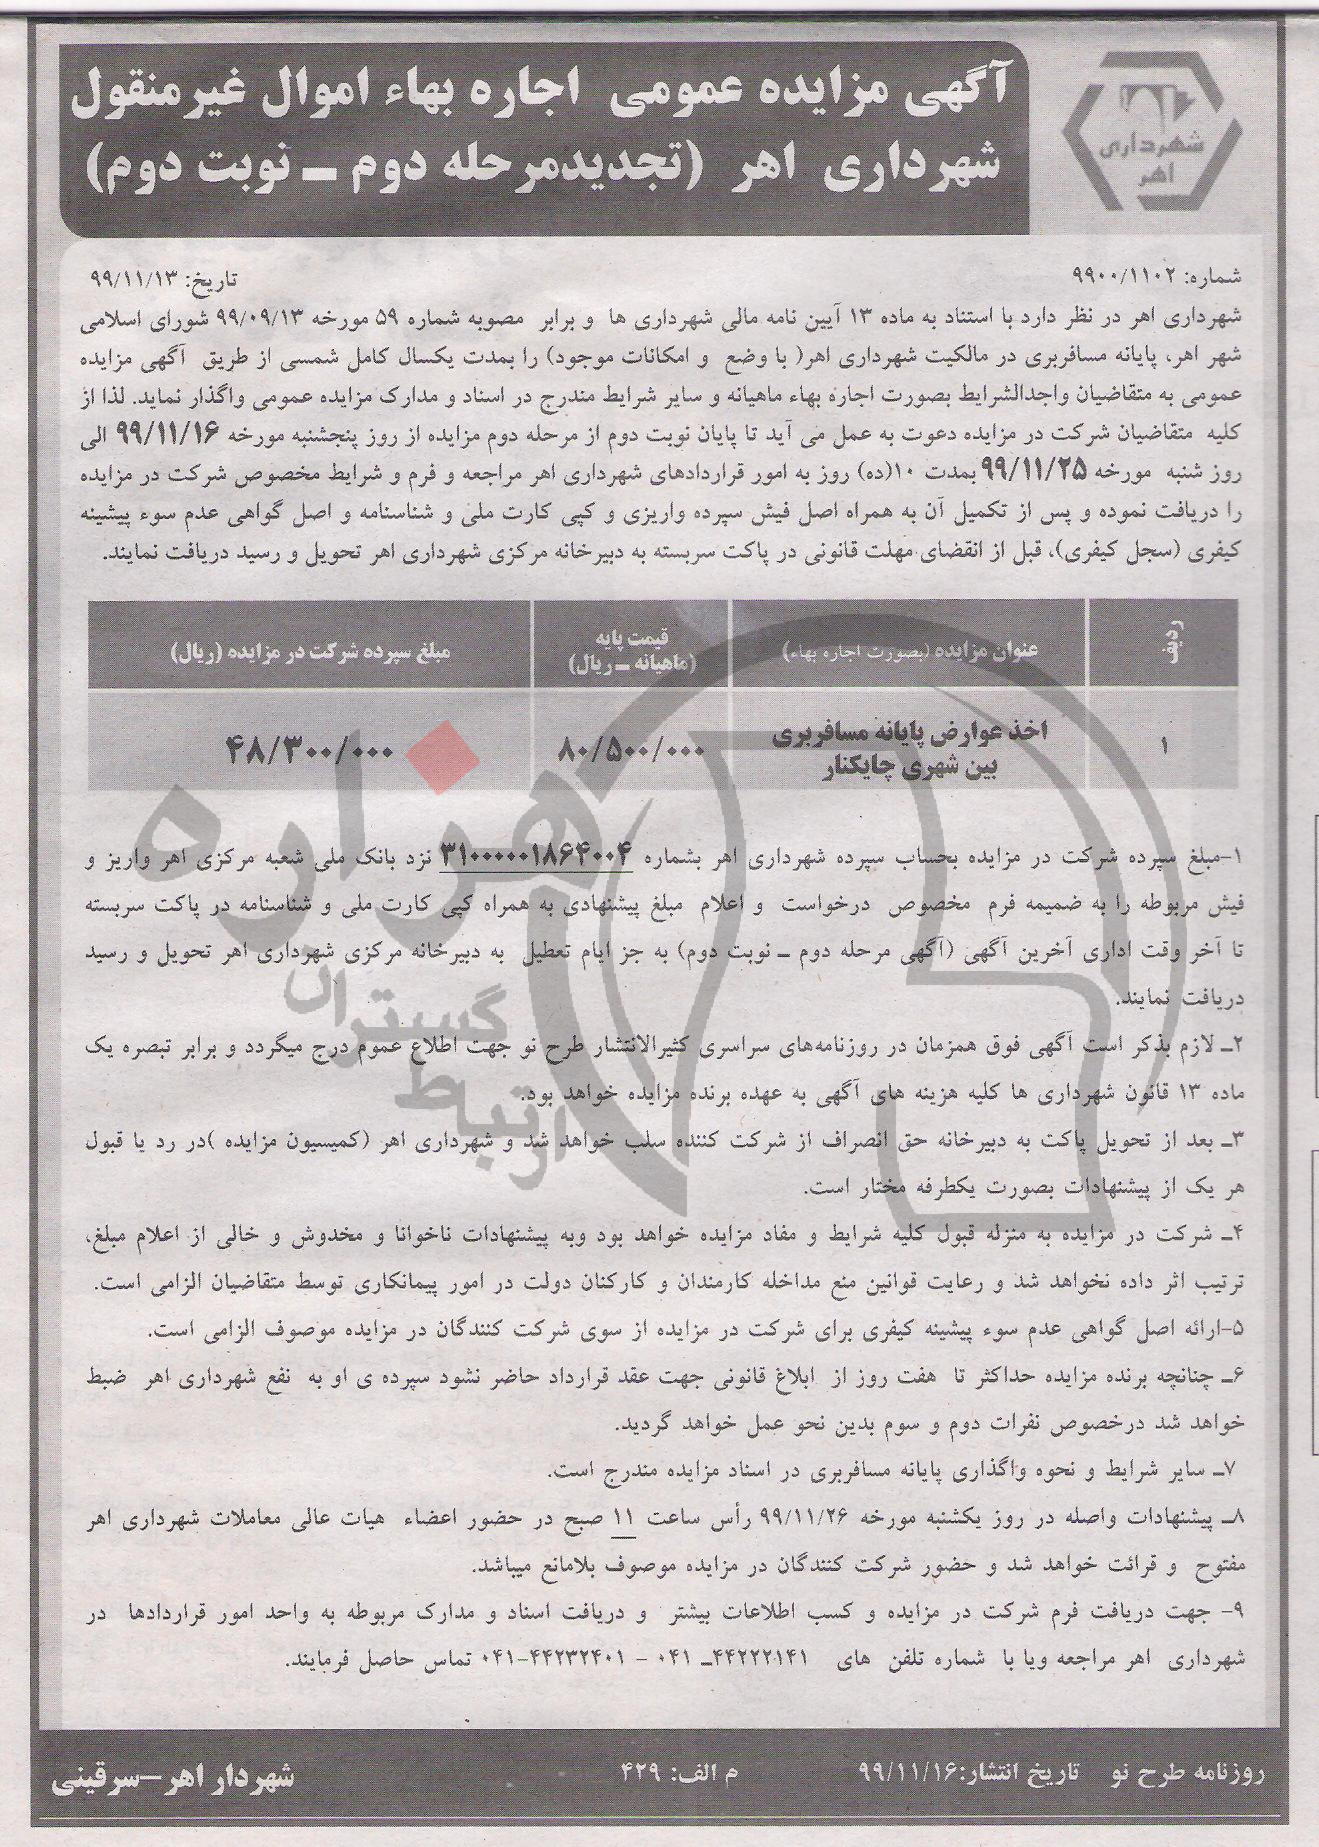 آگهی مزایده عمومی اجاره بهاء اموال غیرمنقول
شهرداری اهر (تجدیدمرحله دوم ـ نوبت دوم)
شهرداری
اهر
شماره: ۹۹۰۰/۱۱۰۲
تاریخ: ۹۹/۱۱/۱۳
شهرداری اهر در نظر دارد با استناد به ماده ۱۳ آیین نامه مالی شهرداری ها و برابر مصوبه شماره ۵۹ مورخه ۹۹/۰۹/۱۳ شورای اسلامی
شهر اهر، پایانه مسافربری در مالکیت شهرداری اهر( با وضع و امکانات موجود) را بمدت یکسال کامل شمسی از طریق آگهی مزایده
عمومی به متقاضیان واجدالشرایط بصورت اجاره بهاء ماهیانه و سایر شرایط مندرج در اسناد و مدارک مزایده عمومی واگذار نماید. لذا از
کلیه متقاضیان شرکت در مزایده دعوت به عمل می آید تا پایان نوبت دوم از مرحله دوم مزایده از روز پنجشنبه مورخه ۹۹/۱۱/۱۶ الی
روز شنبه مورخه ۹۹/۱۱/۲۵ بمدت ۱۰(ده) روز به امور قراردادهای شهرداری اهر مراجعه و فرم و شرایط مخصوص شرکت در مزایده
را دریافت نموده و پس از تکمیل آن به همراه اصل فیش سپرده واریزی و کپی کارت ملی و شناسنامه و اصل گواهی عدم سوء پیشینه
کیفری (سجل کیفری)، قبل از انقضای مهلت قانونی در پاکت سربسته به دبیرخانه مرکزی شهرداری اهر تحویل و رسید دریافت نمایند.
ردیف
عنوان مزایده (بصورت اجاره بهاء)
قیمت پایه
(ماهیانه ـ ریال)
مبلغ سپرده شرکت در مزایده (ریال)
۱
اخذ عوارض پایانه مسافربری
بین شهری چایکنار
۸۰/۵۰۰/۰۰۰
۴۸/۳۰۰/۰۰۰
۱-مبلغ سپرده شرکت در مزایده بحساب سپرده شهرداری اهر بشماره ۳۱۰۰۰۰۰۱۸۶۴۰۰۴ نزد بانک ملی شعبه مرکزی اهر واریز و
فیش مربوطه را به ضمیمه فرم مخصوص درخواست و اعلام مبلغ پیشنهادی به همراه کپی کارت ملی و شناسنامه در پاکت سربسته
تا آخر وقت اداری آخرین آگهی (آگهی مرحله دوم ـ نوبت دوم) به جز ایام تعطیل به دبیرخانه مرکزی شهرداری اهر تحویل و رسید
دریافت نمایند.
۲ـ لازم بذکر است آگهی فوق همزمان در روزنامه‌های سراسری کثیرالانتشار طرح نو جهت اطلاع عموم درج میگردد و برابر تبصره یک
ماده ۱۳ قانون شهرداری ها کلیه هزینه های آگهی به عهده برنده مزایده خواهد بود.
۳ـ بعد از تحویل پاکت به دبیرخانه حق انصراف از شرکت کننده سلب خواهد شد و شهرداری اهر (کمیسیون مزایده )در رد یا قبول
هر یک از پیشنهادات بصورت یکطرفه مختار است.
۴ـ شرکت در مزایده به منزله قبول کلیه شرایط و مفاد مزایده خواهد بود وبه پیشنهادات ناخوانا و مخدوش و خالی از اعلام مبلغ،
ترتیب اثر داده نخواهد شد و رعایت قوانین منع مداخله کارمندان و کارکنان دولت در امور پیمانکاری توسط متقاضیان الزامی است.
۵-ارائه اصل گواهی عدم سوء پیشینه کیفری برای شرکت در مزایده از سوی شرکت کنندگان در مزایده موصوف الزامی است.
۶ـ چنانچه برنده مزایده حداکثر تا هفت روز از ابلاغ قانونی جهت عقد قرارداد حاضر نشود سپرده ی او به نفع شهرداری اهر ضبط
خواهد شد درخصوص نفرات دوم و سوم بدین نحو عمل خواهد گردید.
۷ـ سایر شرایط و نحوه واگذاری پایانه مسافربری در اسناد مزایده مندرج است.
۸ـ پیشنهادات واصله در روز یکشنبه مورخه ۹۹/۱۱/۲۶ رأس ساعت ۱۱ صبح در حضور اعضاء هیات عالی معاملات شهرداری اهر
مفتوح و قرائت خواهد شد و حضور شرکت کنندگان در مزایده موصوف بلامانع میباشد.
۹- جهت دریافت فرم شرکت در مزایده و کسب اطلاعات بیشتر و دریافت اسناد و مدارک مربوطه به واحد امور قراردادها در
شهرداری اهر مراجعه ویا با شماره تلفن های ۴۴۲۲۲۱۴۱ـ ۰۴۱ - ۴۴۲۳۲۴۰۱-۰۴۱ تماس حاصل فرمایند.
هزاره
گستران
ارتباط
روزنامه طرح نو تاریخ انتشار:۹۹/۱۱/۱۶
م الف: ۴۲۹
شهردار اهر–سرقینی